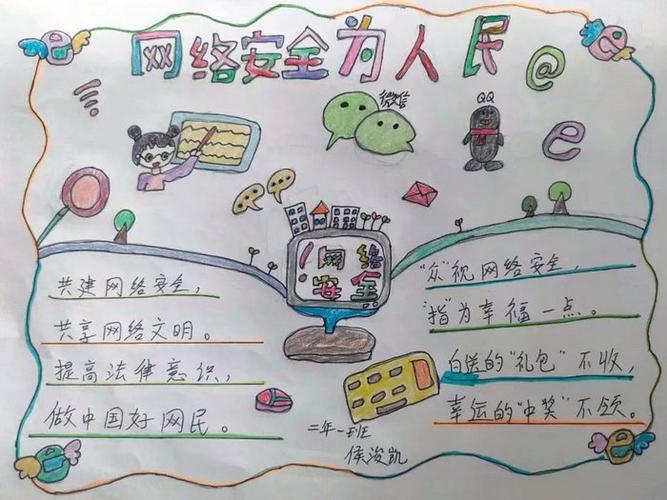 网络安全为人民
@
微信
QQ
e
网络
安全
共建网络安全，
共享网络文明。
提高法律意识，
做中国好网民。
"众"视网络安全，
"指"为幸福一点。
白送的"礼包"不收，
幸运的"中奖"不领。
二年一班
侯浚凯